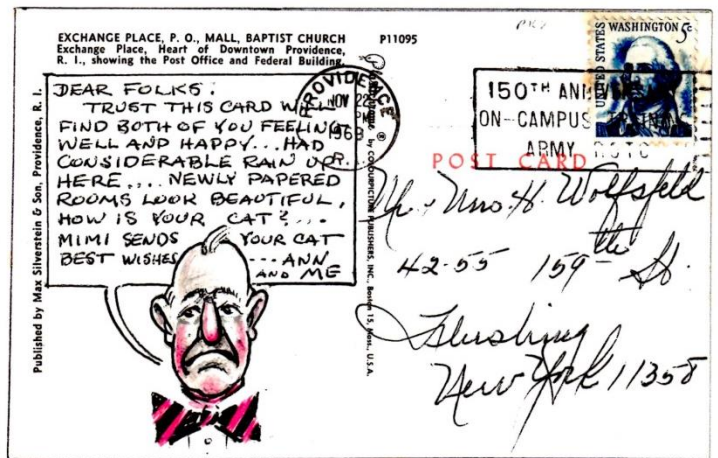 EXCHANGE PLACE, P. O., MALL, BAPTIST CHURCH P11095
Exchange Place, Heart of Downtown Providence,
R. I., showing the Post Office and Federal Building.
Published by Max Silverstein & Son, Providence, R. I.
DEAR FOLKS:
TRUST THIS CARD WILL
FIND BOTH OF YOU FEELING
WELL AND HAPPY... HAD
CONSIDERABLE RAIN UP
HERE.... NEWLY PAPERED
ROOMS LOOK BEAUTIFUL,
HOW IS YOUR CAT?...
MIMI SENDS YOUR CAT
BEST WISHES ---ANN
AND ME
by COLOURPICTURE PUBLISHERS, INC., Boston 15, Mass., U.S.A.
PROVIDENCE
NOV 22
PM
1968
UNITED STATES
WASHINGTON 5c
150TH ANNIVERSARY
ON-CAMPUS TRAINING
ARMY ROTC
POST CARD
Mr. Mrs. H. Wolfsfeld
42-55 159th St.
Flushing
New York 11358